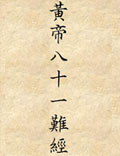 黃帝八十一難經